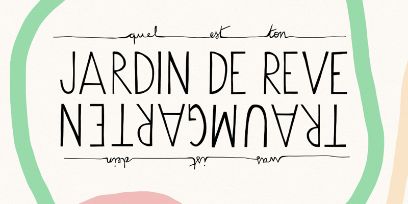 quel est ton
JARDIN DE REVE
was ist dein
TRAUMGARTEN